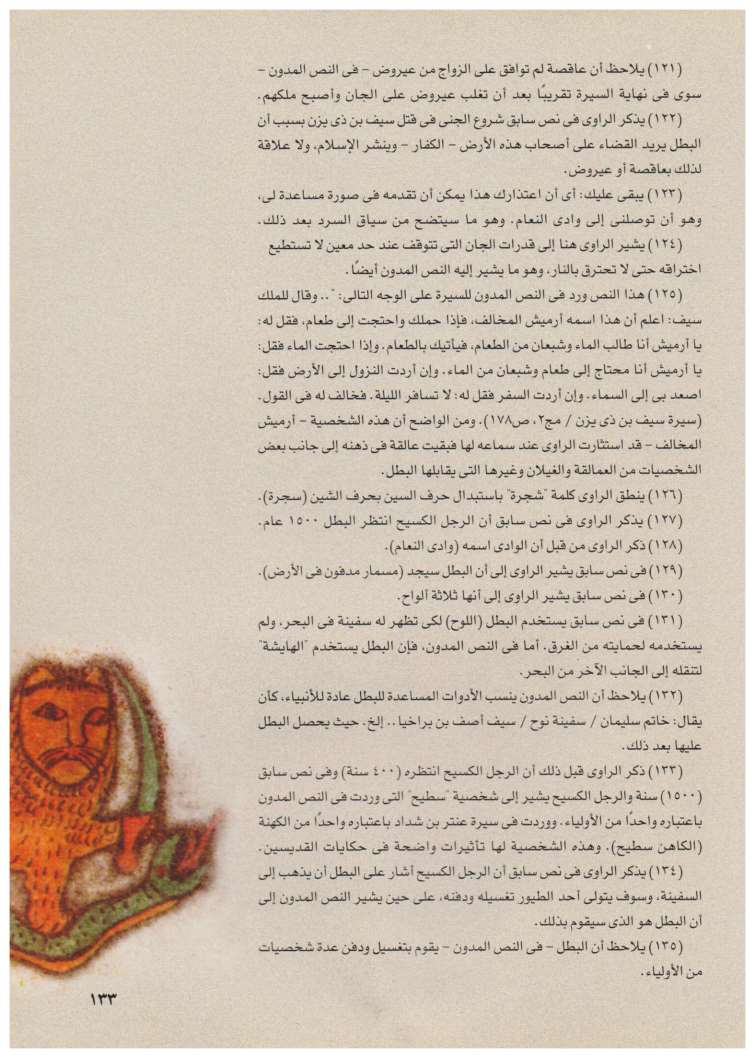 (١٢١) يلاحظ أن عاقصة لم توافق على الزواج من عيروض – فى النص المدون –
سوى فى نهاية السيرة تقريبًا بعد أن تغلب عيروض على الجان وأصبح ملكهم.
(١٢٢) يذكر الراوى فى نص سابق شروع الجنى فى قتل سيف بن ذى يزن بسبب أن
البطل يريد القضاء على أصحاب هذه الأرض – الكفار – وينشر الإسلام، ولا علاقة
لذلك بعاقصة أو عيروض.
(١٢٣) يبقى عليك: أى أن اعتذارك هذا يمكن أن تقدمه فى صورة مساعدة لى،
وهو أن توصلنى إلى وادى النعام. وهو ما سيتضح من سياق السرد بعد ذلك.
(١٢٤) يشير الراوى هنا إلى قدرات الجان التى تتوقف عند حد معين لا تستطيع
اختراقه حتى لا تحترق بالنار، وهو ما يشير إليه النص المدون أيضًا.
(١٢٥) هذا النص ورد فى النص المدون للسيرة على الوجه التالى: ".. وقال للملك
سيف: اعلم أن هذا اسمه أرميش المخالف، فإذا حملك واحتجت إلى طعام، فقل له:
يا أرميش أنا طالب الماء وشبعان من الطعام، فيأتيك بالطعام. وإذا احتجت الماء فقل:
يا أرميش أنا محتاج إلى طعام وشبعان من الماء. وإن أردت النزول إلى الأرض فقل:
اصعد بى إلى السماء. وإن أردت السفر فقل له: لا تسافر الليلة. فخالف له فى القول.
(سيرة سيف بن ذى يزن / مج٢، ص١٧٨). ومن الواضح أن هذه الشخصية – أرميش
المخالف – قد استثارت الراوى عند سماعه لها فبقيت عالقة فى ذهنه إلى جانب بعض
الشخصيات من العمالقة والغيلان وغيرها التى يقابلها البطل.
(١٢٦) ينطق الراوى كلمة "شجرة" باستبدال حرف السين بحرف الشين (سجرة).
(١٢٧) يذكر الراوى فى نص سابق أن الرجل الكسيح انتظر البطل ١٥٠٠ عام.
(١٢٨) ذكر الراوى من قبل أن الوادى اسمه (وادى النعام).
(١٢٩) فى نص سابق يشير الراوى إلى أن البطل سيجد (مسمار مدفون فى الأرض).
(١٣٠) فى نص سابق يشير الراوى إلى أنها ثلاثة ألواح.
(١٣١) فى نص سابق يستخدم البطل (اللوح) لكى تظهر له سفينة فى البحر، ولم
يستخدمه لحمايته من الغرق. أما فى النص المدون، فإن البطل يستخدم "الهايشة"
لتنقله إلى الجانب الآخر من البحر.
(١٣٢) يلاحظ أن النص المدون ينسب الأدوات المساعدة للبطل عادة للأنبياء، كأن
يقال: خاتم سليمان / سفينة نوح / سيف أصف بن براخيا.. إلخ. حيث يحصل البطل
عليها بعد ذلك.
(١٣٣) ذكر الراوى قبل ذلك أن الرجل الكسيح انتظره (٤٠٠ سنة) وفى نص سابق
(١٥٠٠) سنة والرجل الكسيح يشير إلى شخصية "سطيح" التى وردت فى النص المدون
باعتباره واحدًا من الأولياء. ووردت فى سيرة عنتر بن شداد باعتباره واحدًا من الكهنة
(الكاهن سطيح). وهذه الشخصية لها تأثيرات واضحة فى حكايات القديسين.
(١٣٤) يذكر الراوى فى نص سابق أن الرجل الكسيح أشار على البطل أن يذهب إلى
السفينة، وسوف يتولى أحد الطيور تغسيله ودفنه، على حين يشير النص المدون إلى
أن البطل هو الذى سيقوم بذلك.
(١٣٥) يلاحظ أن البطل – فى النص المدون – يقوم بتغسيل ودفن عدة شخصيات
من الأولياء.
١٣٣